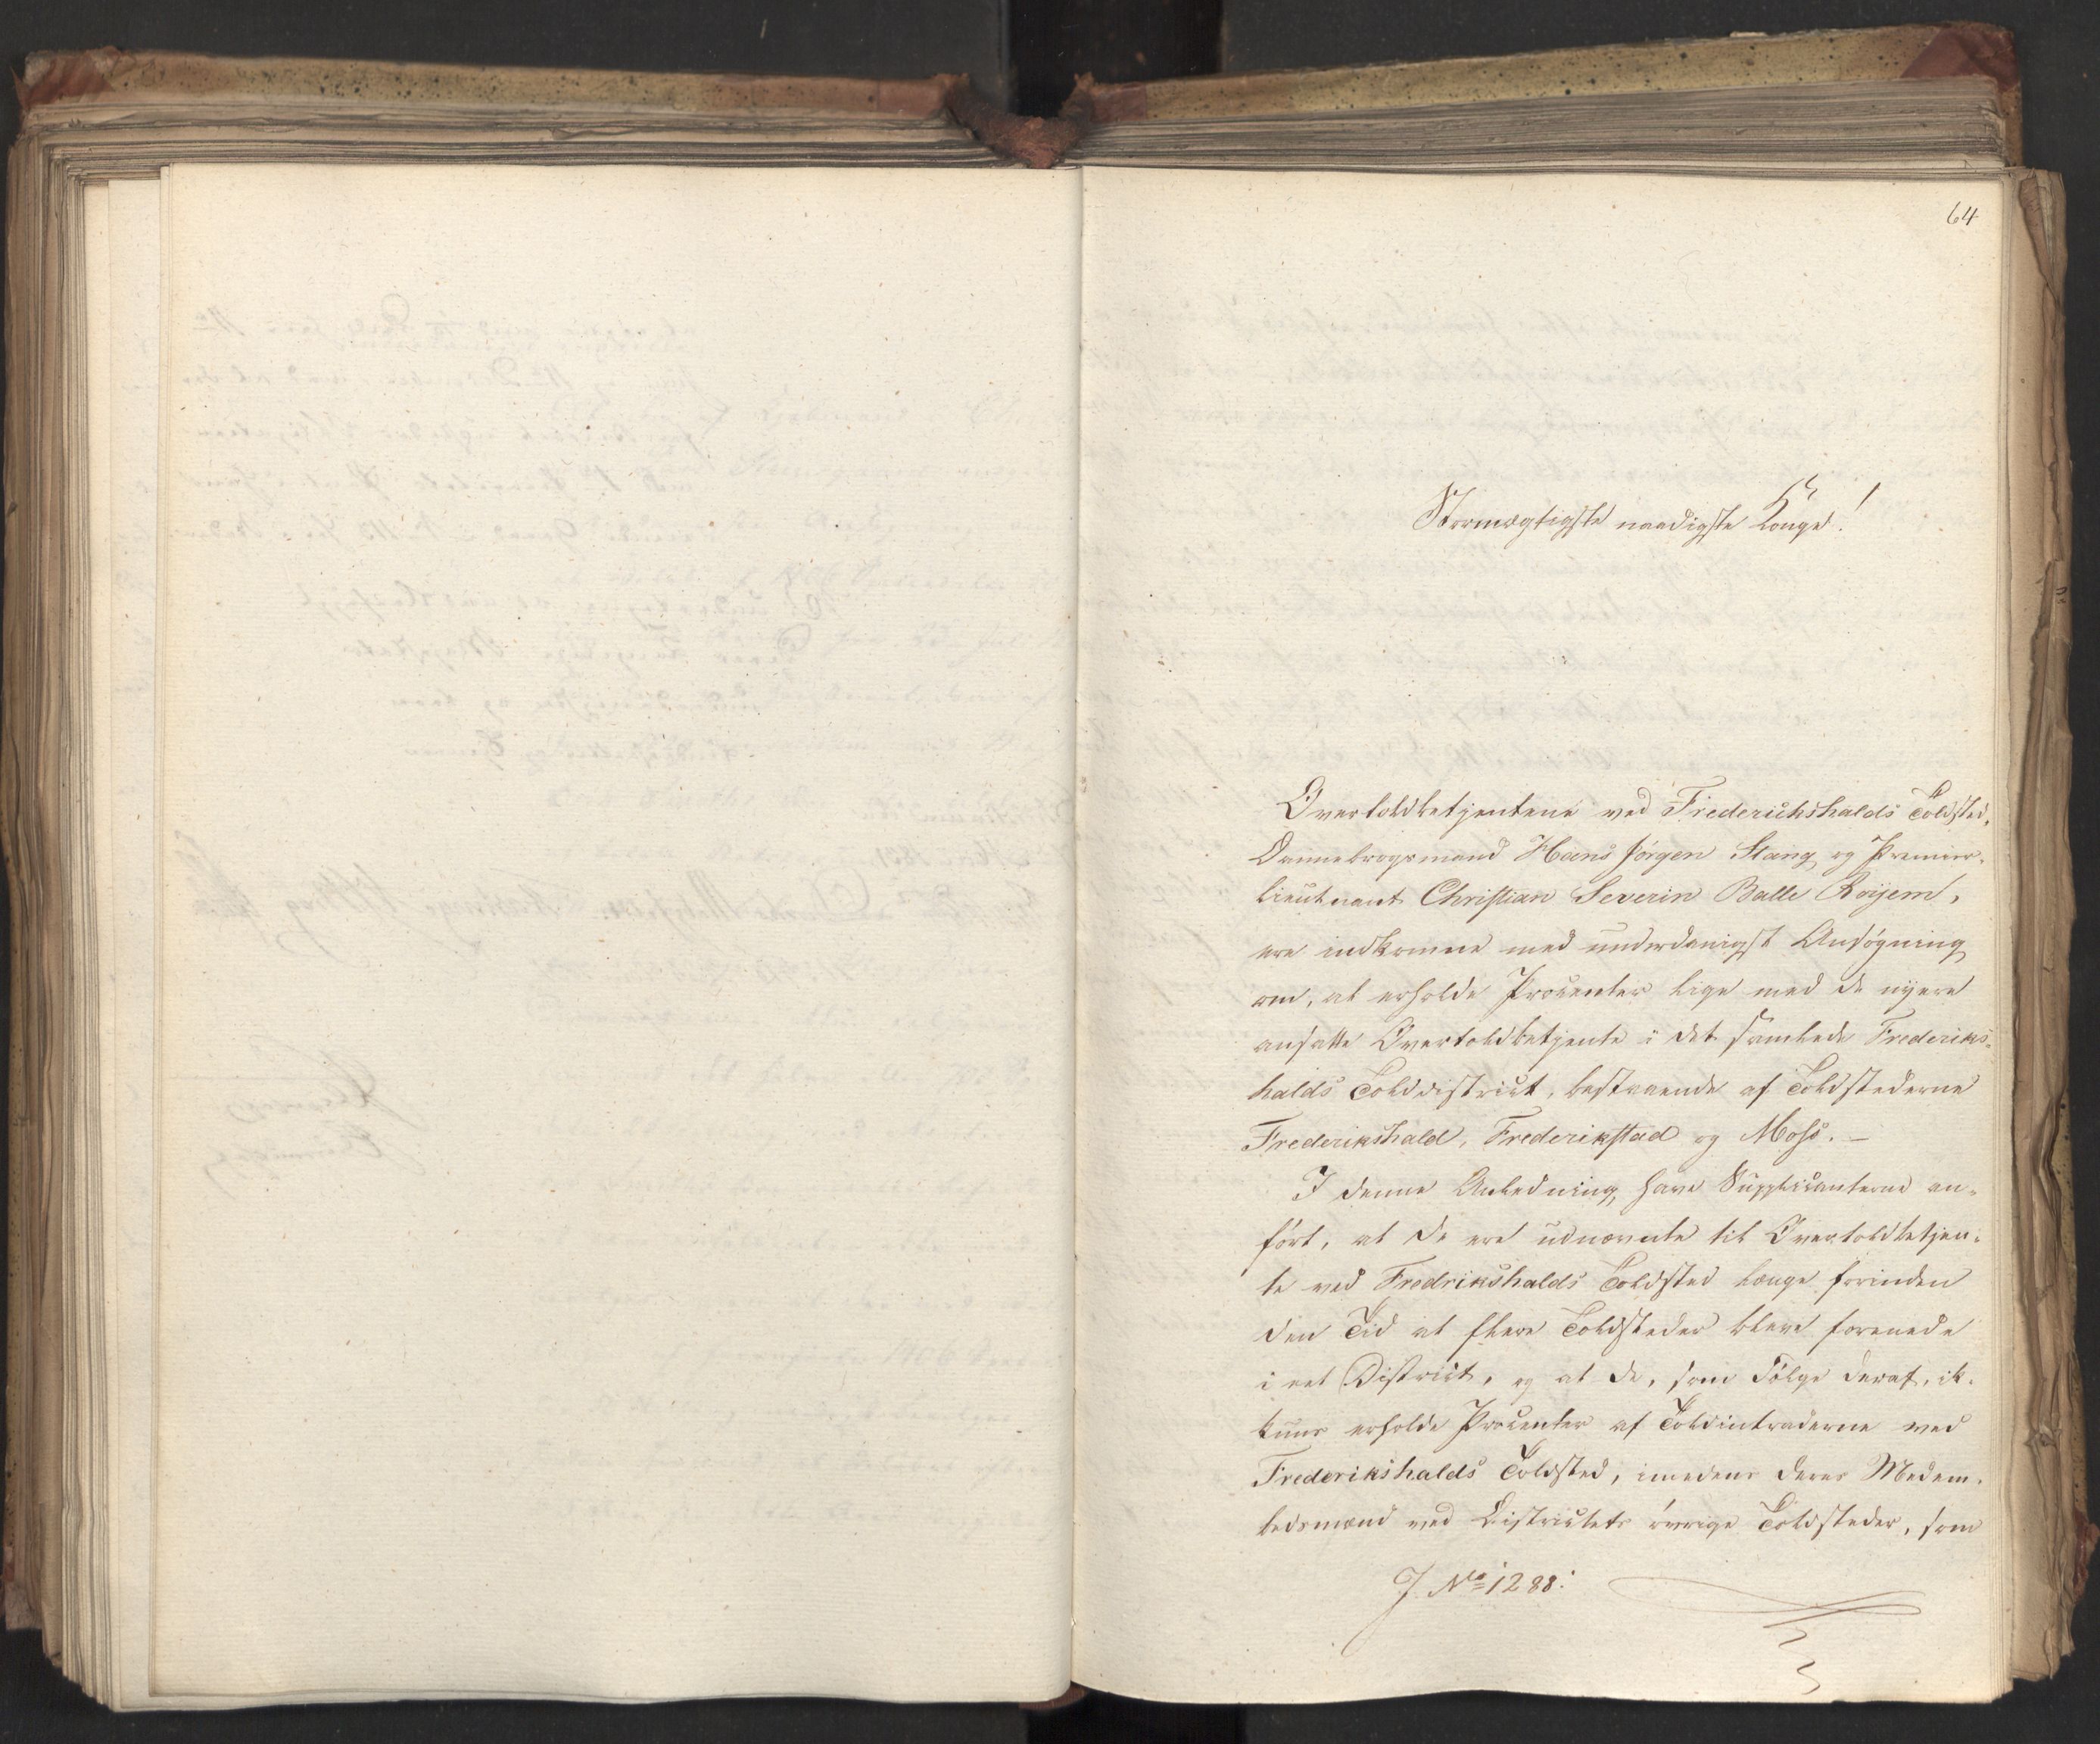 64
Stormægtigste naadigste Konge!
Overtoldbetjentene ved Friderichshalds Toldsted,
Dannebrogsmand Hans Jørgen Stang og Premier-
lieutnant Christian Severin Balle Roijem,
ere indkomne med underdanigst Ansøgning
om, at erholde Procenter lige med de nyere
ansatte Overtoldbetjente i det samlede Frederiks-
halds Tolddistrict, bestaaende af Toldstederne
Frederikshald, Frederikstad og Moss. –
I denne Anledning, have Supplicanterne an-
ført, at de ere udnævnte til Overtoldbetjen-
te ved Fredrikshalds Toldsted længe forinden
den Tid at flere Toldsteder bleve forenede
i eet District, og at de, som Følge deraf, ik-
kuns erholde Procenter af Toldintraderne ved
Frederikshalds Toldsted, imedens deres Medem-
bedsmænd ved Districtets øvrige Toldsteder, som
J. No 1288.